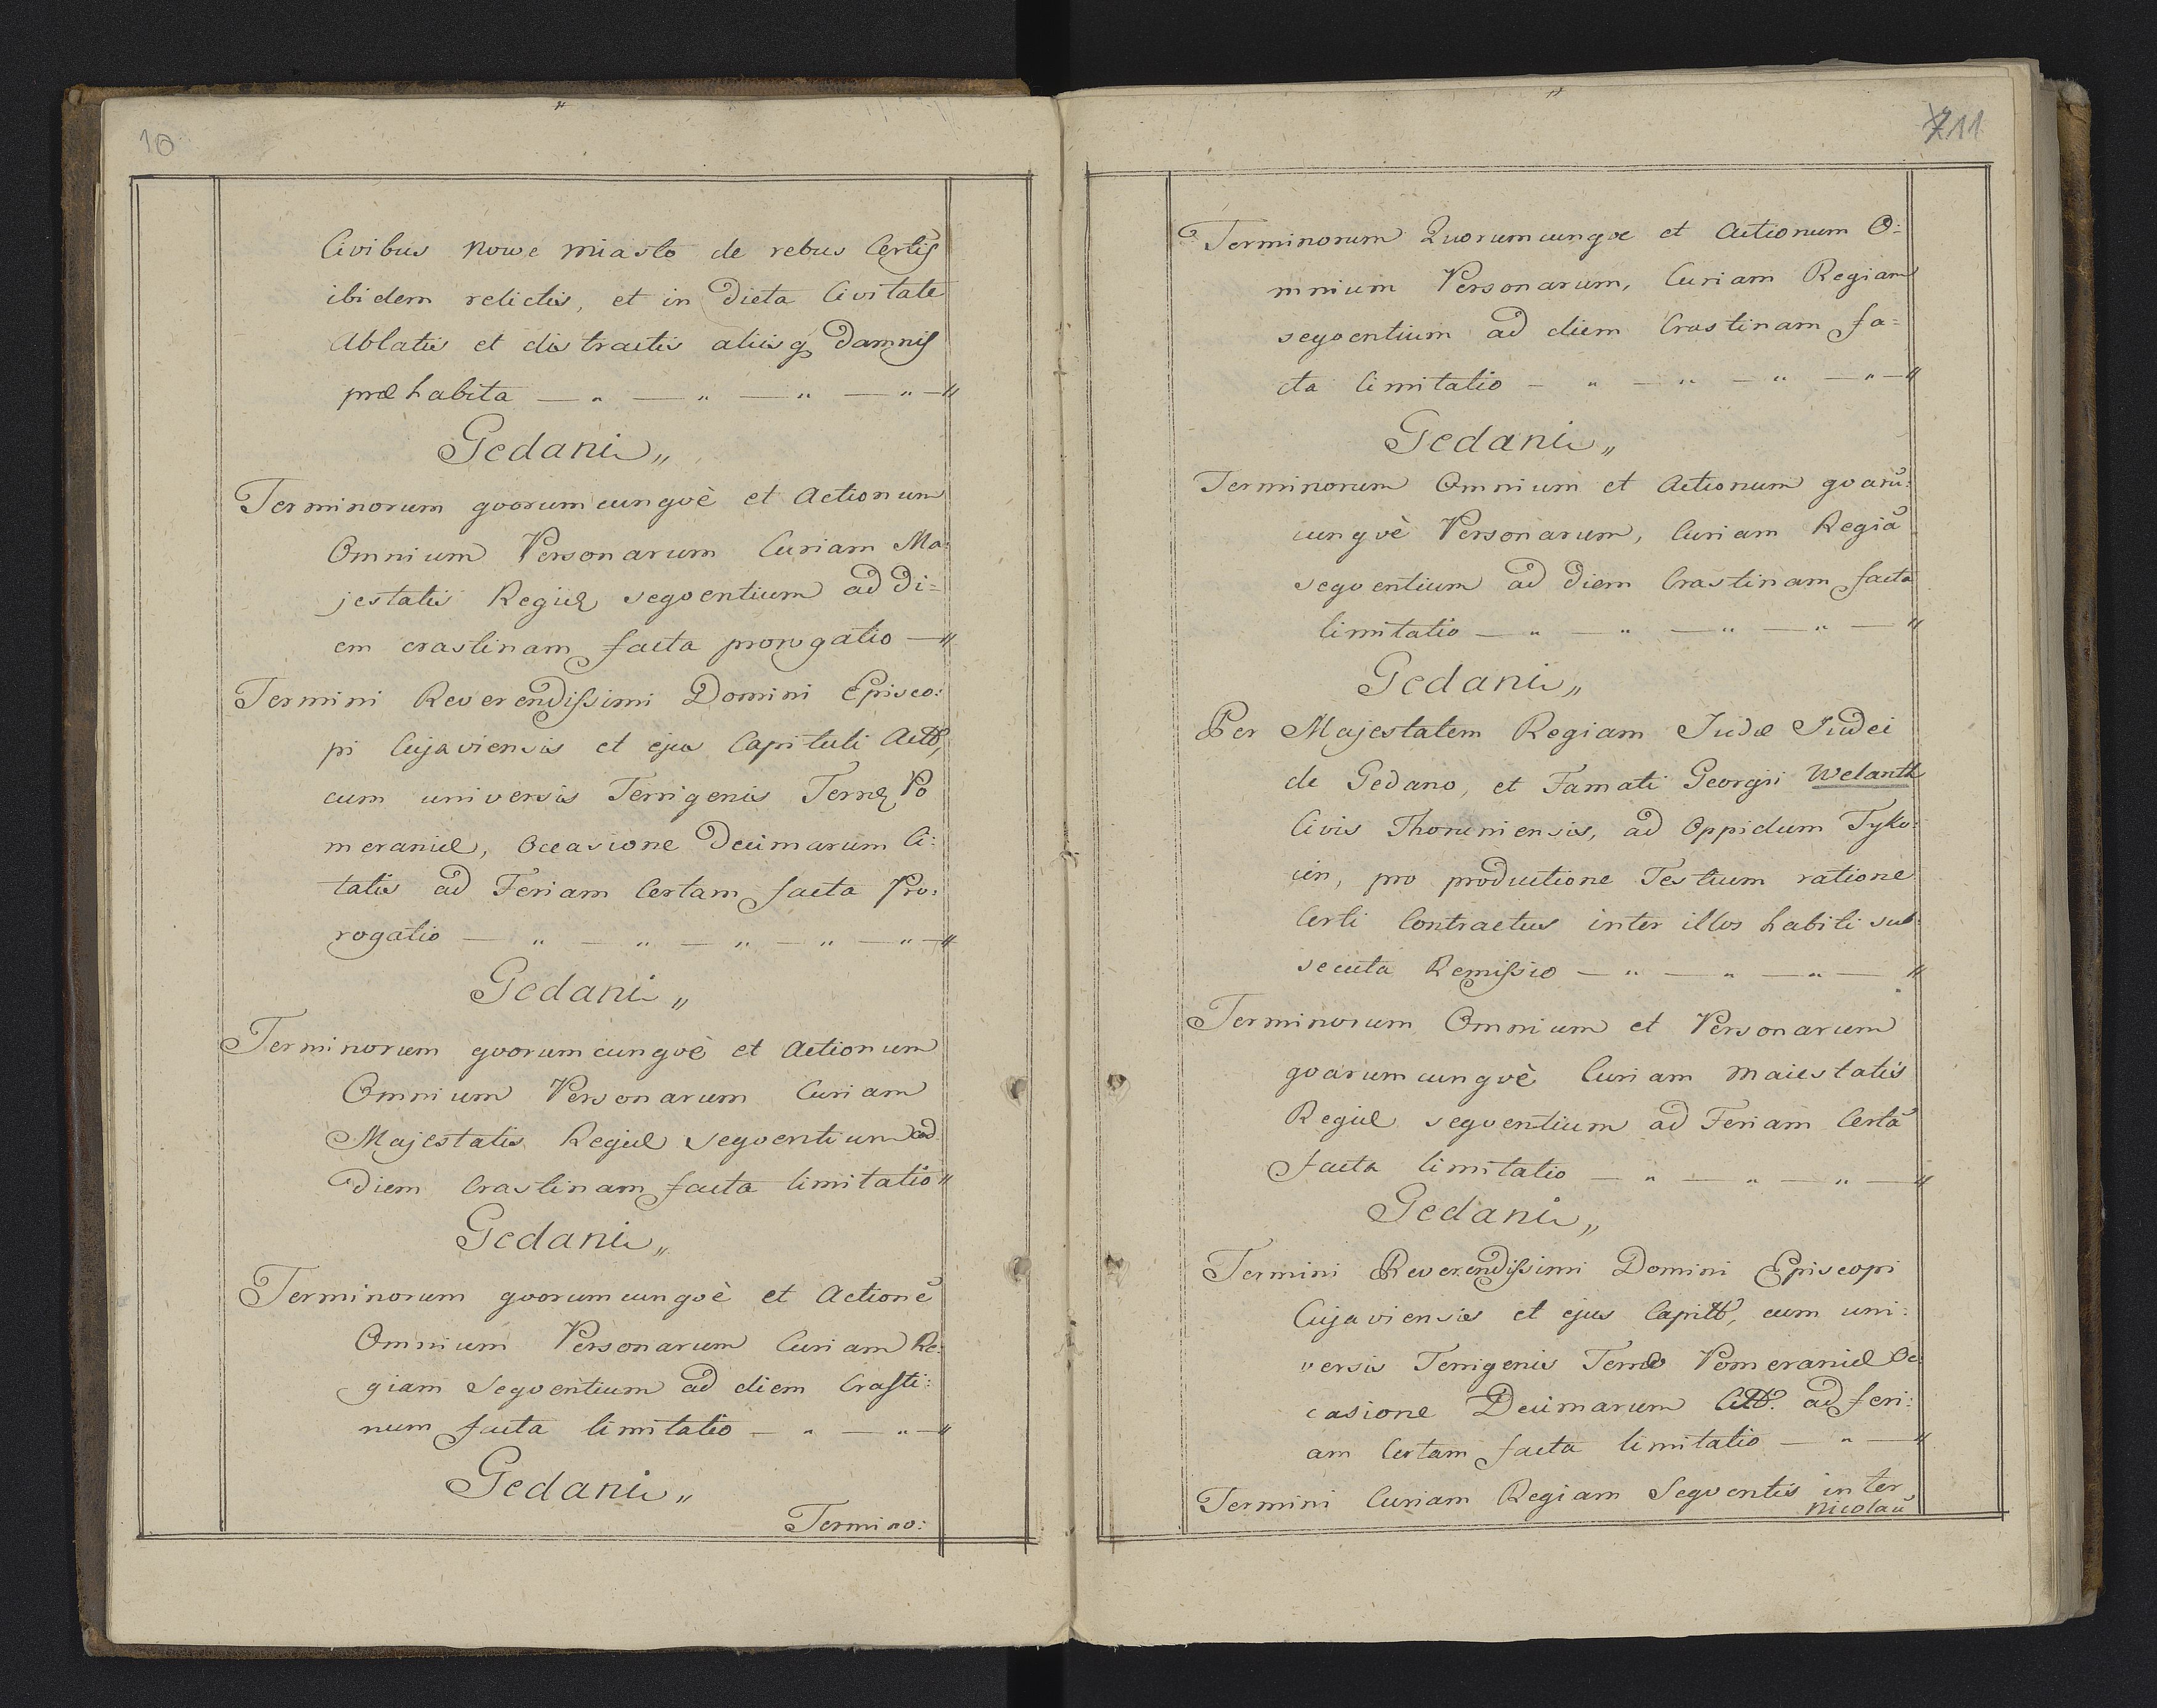 10
Civibus Nowe Miasto de rebus Certis
ibidem relictis, et in Dicta Civitate
Ablatis et distractis aliisq Damnis
præhabita — " — " — " — " — "
Gedani "
Terminorum qvorumcunqvè et Actionum
Omnium Personarum Curiam Ma:
jestatis Regiæ seqventium ad Di=
em crastinam facta prorogatio — "
Termini Reverendissimi Domini Episco:
pi Cujaviensis et ejus Capituli Actt,
cum universis Terrigenis Terræ Po
meraniæ, Occasione Decimarum Ci:
tatis ad Feriam Certam facta Pro:
rogatio — " — " — " — " — " — "
Gedani "
Terminorum qvorumcunqvè et Actionum
Omnium Personarum Curiam
Majestatis Regiæ seqventium ad
Diem Crastinam facta limitatio "
Gedani "
Terminorum qvorumcunqvè et Actionũ
Omnium Personarum Curiam Re:
giam Seqventium ad diem Crasti:
num facta limitatio — " — " — "
Gedani "
Termino:
7 11
Terminorum Quorumcunqve et Actionum O:
mnium Personarum, Curiam Regiam
seqventium ad diem Crastinam fa=
cta limitatio — " — " — " — " — "
Gedani "
Terminorum Omnium et Actionum qvarũ:
cunqvè Personarum, Curiam Regiã
seqventium ad Diem Crastinam facta
limitatio — " — " — " — " — "
Gedani "
Per Majestatem Regiam Judæ Judei
de Gedano, et Famati Georgii Welanth
Civis Thoruniensis, ad Oppidum Tyko:
cin, pro productione Testium ratione
Certi Contractus inter illos habiti sub:
secuta Remissio — " — " — " — "
Terminorum Omnium et Personarum
qvarumcunqvè Curiam Maiestatis
Regiæ seqventium ad Feriam Certã
facta limitatio — " — " — " — "
Gedani "
Termini Reverendissimi Domini Episcopi
Cujaviensis et ejus Capitt, cum uni:
versis Terrigenis Terræ Pomeraniæ Oc:
casione Decimarum Citt. ad feri:
am Certam facta limitatio — " — "
Termini Curiam Regiam Seqventis inter
Nicolaũ